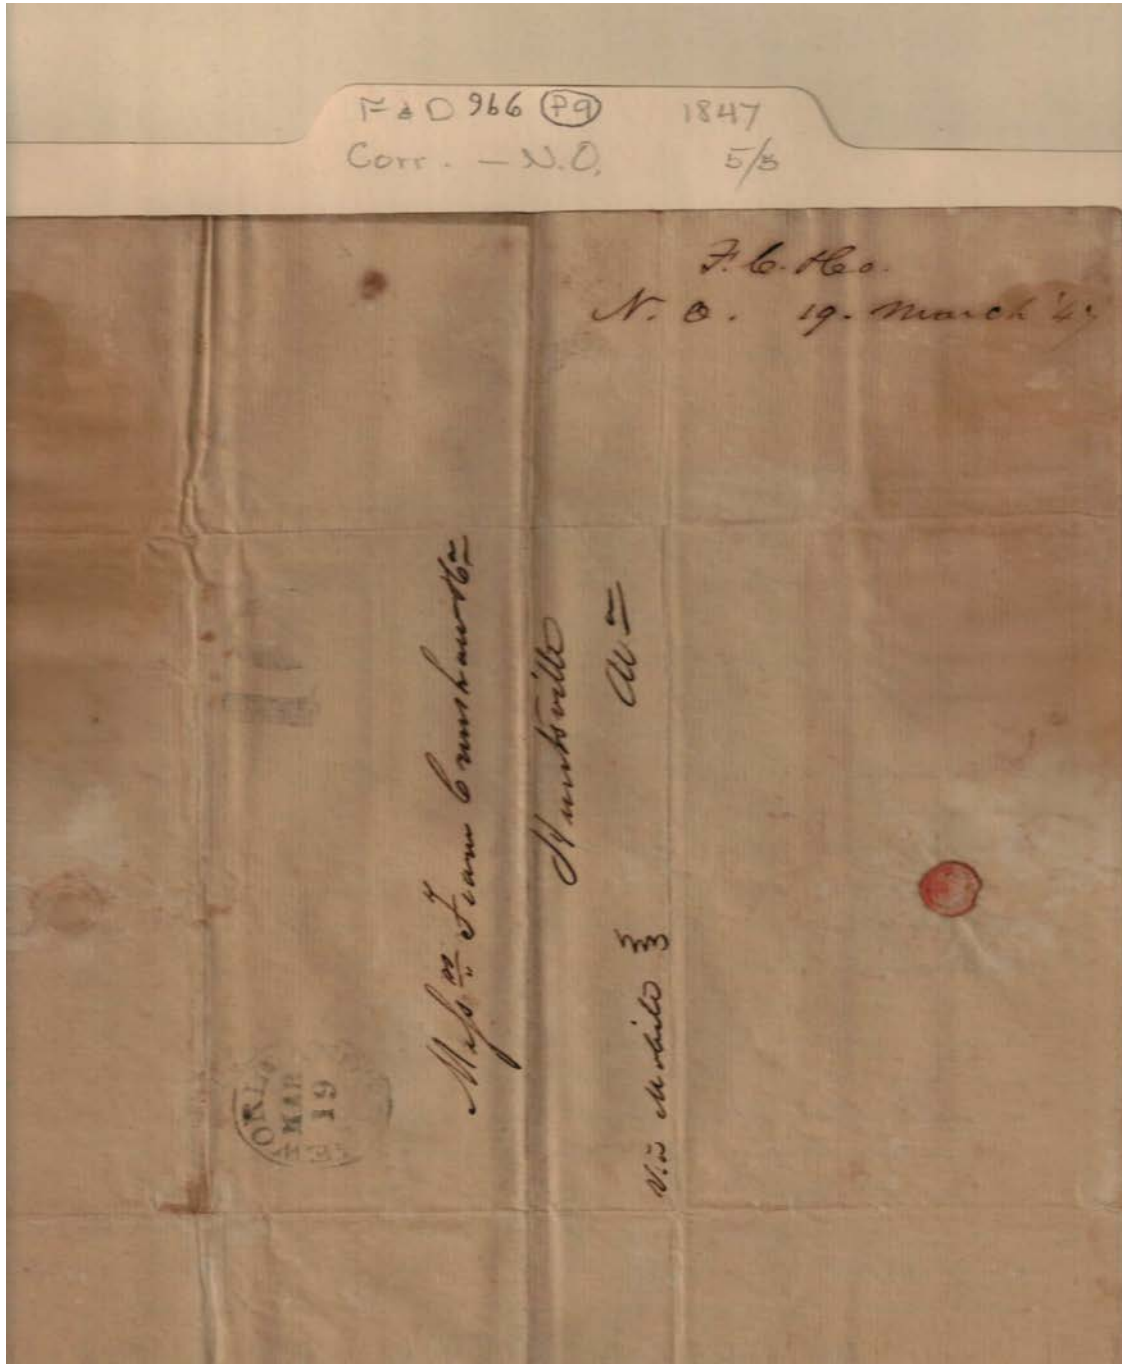 F & D 966 P9 1847
Corr. - N.O. 5/5
F. C. & Co.
N. O. 19. March '47
Messrs Fearn Crenshaw & Co
Huntsville
Ala
Via Mobile
ORL
MAR
19